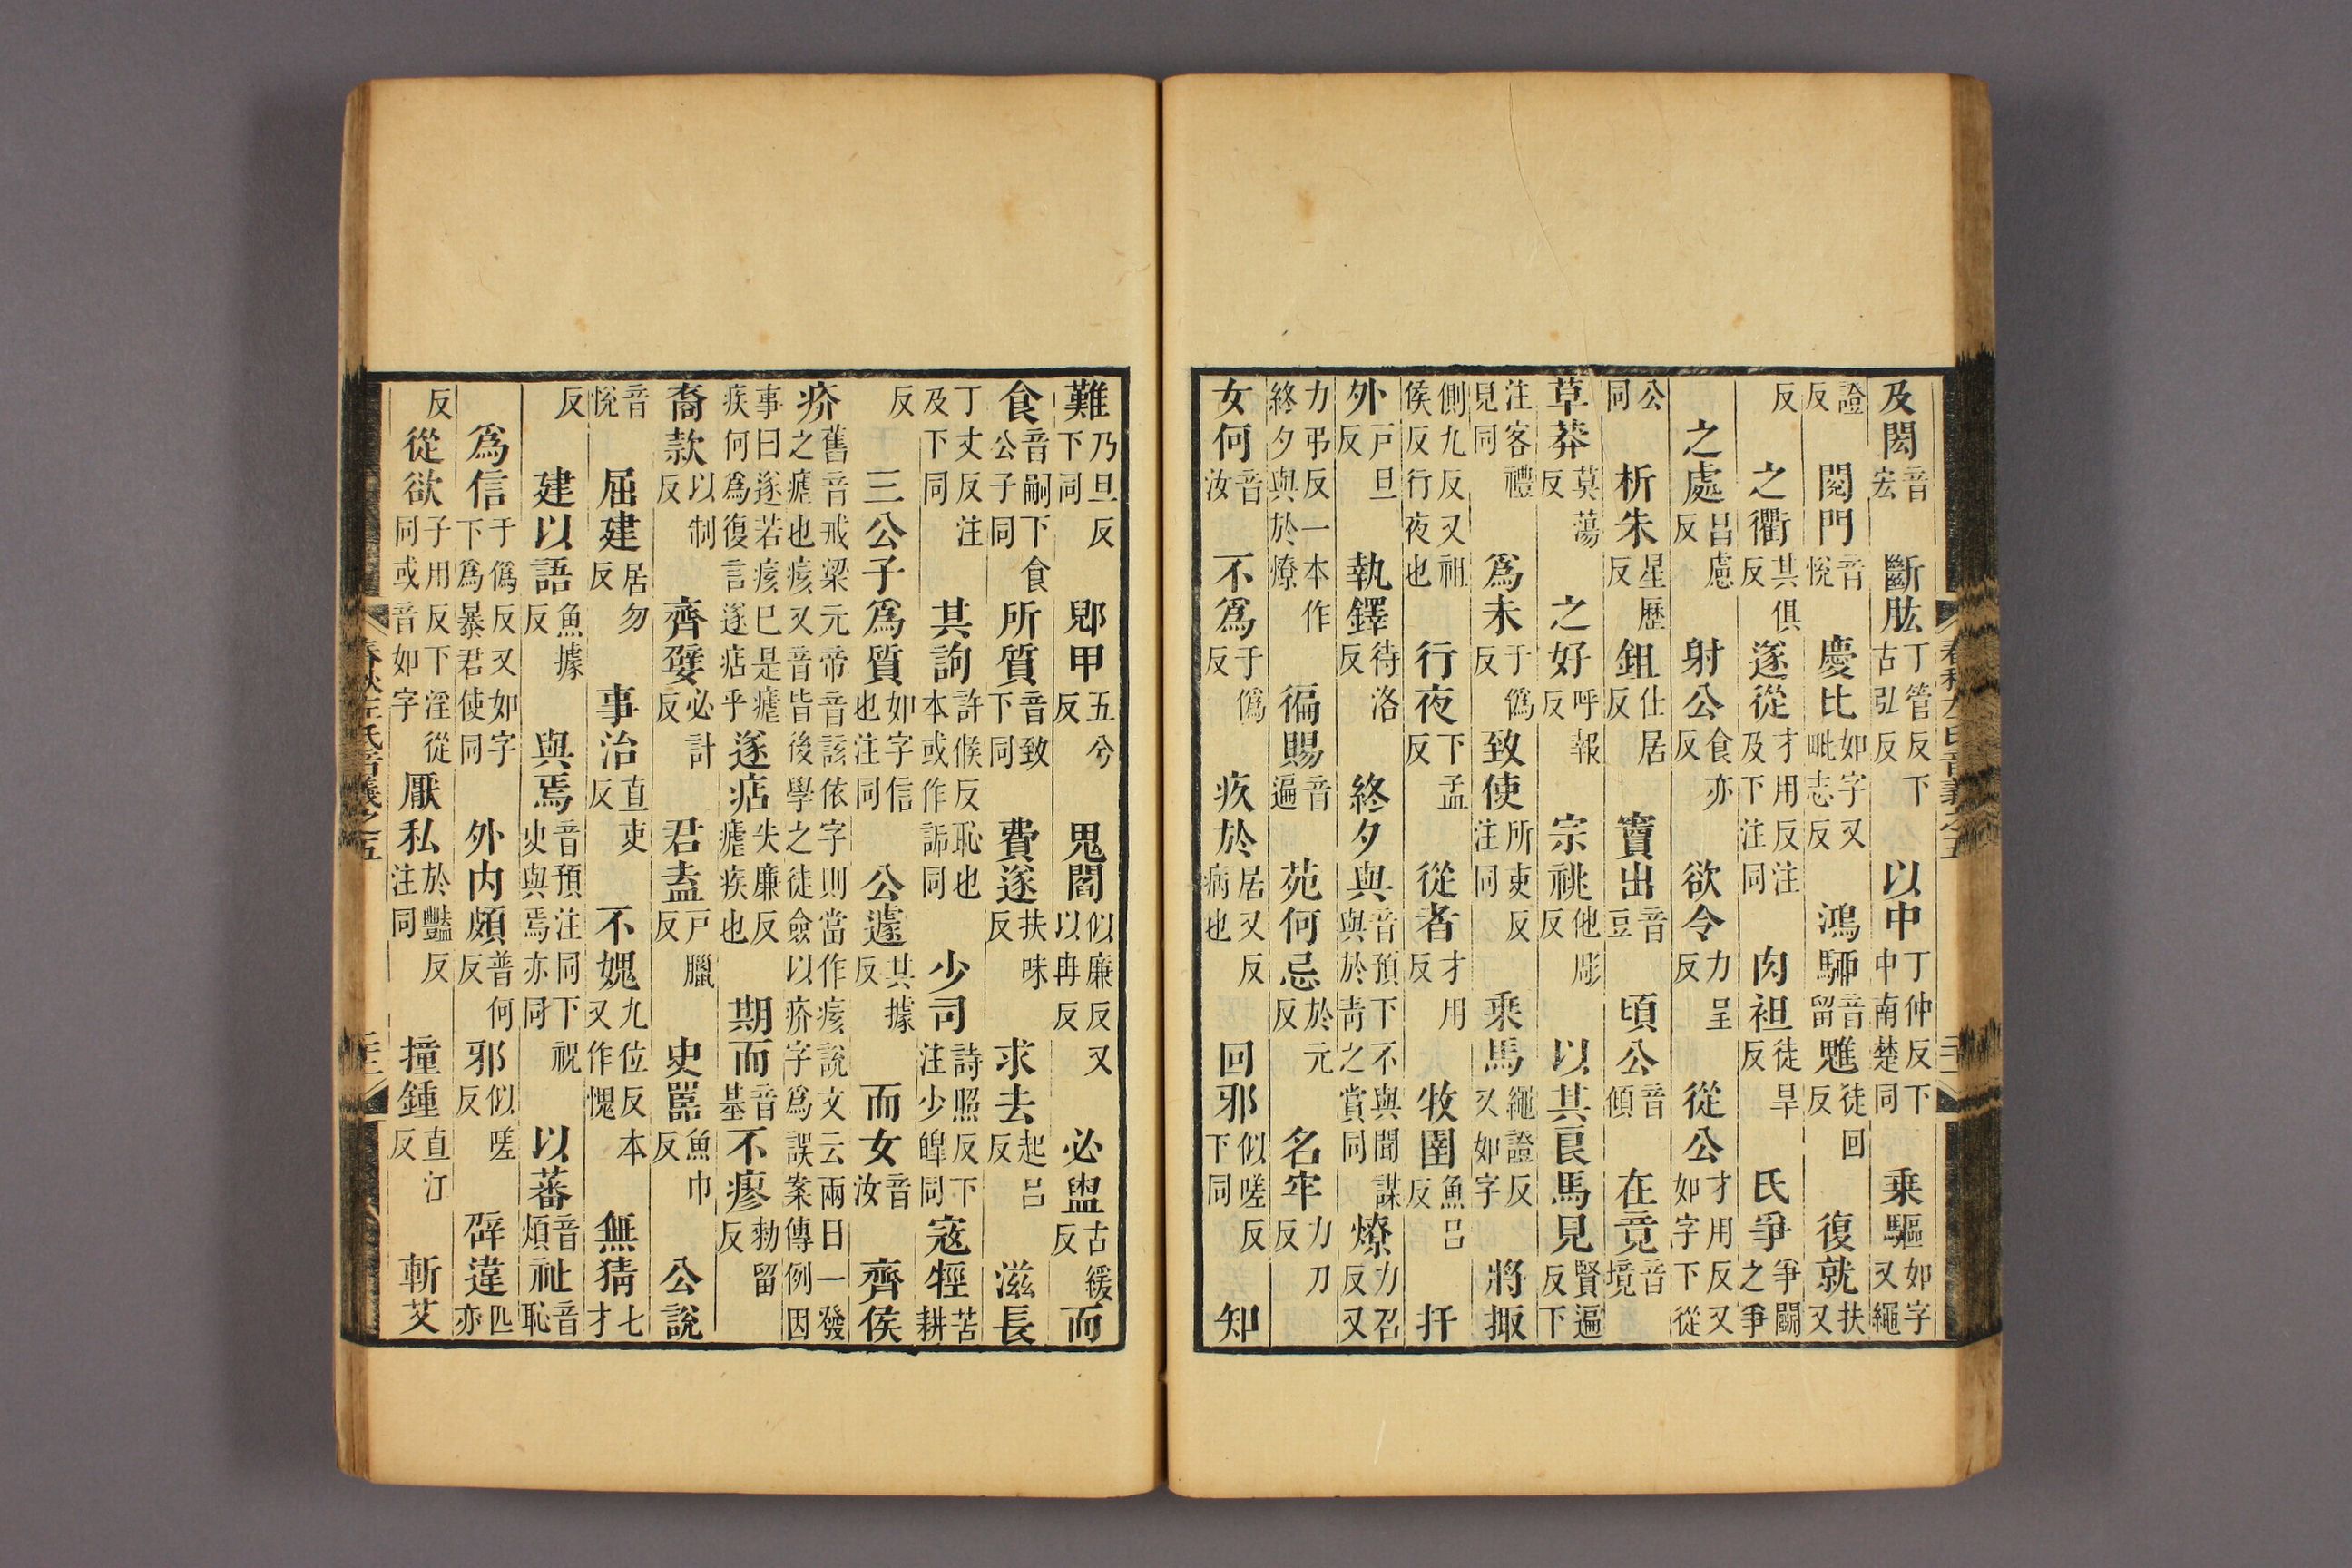 春秋左氏音義之五
及閎音宏 斷肱丁管反下古弘反 以中丁仲反下中南楚同 乘驅如字又繩
證反 閱門音悅 慶比如字又毗志反 鴻駵音留魋徒回反 復就扶又
反 之衢其俱反 遂從才用反注及下注同 肉袒徒旱反 氏爭爭鬭之爭
之處昌慮反 射公食亦反 欲令力呈反 從公才用反又如字下從
公同 析朱星歷反 鉏仕居反 竇出音豆 頃公音傾 在竟音境
草莽莫蕩反 之好呼報反 宗祧他彫反 以其良馬見賢遍反下
注客禮見同 爲未于僞反 致使所吏反注同 乘馬繩證反又如字 將掫
側九反又祖侯反行夜也 行夜下孟反 從者才用反 牧圉魚呂反 扞
外戶旦反 執鐸待洛反 終夕與音預下不與聞謀與於靑之賞同 燎力召反又
力弔反一本作終夕與於燎 徧賜音遍 苑何忌於元反 名牢力刀反
女何音汝 不爲于僞反 疚於居又反病也 回邪似嗟反下同 知
難乃旦反下同 郳甲五兮反 鬼閻似廉反又以冉反 必盥古緩反 而
食音嗣下食公子同 所質音致下同 費遂扶味反 求去起呂反 滋長
丁丈反注及下同 其訽許候反恥也本或作詬同 少司詩照反下注少皞同 寇牼苦耕
反 三公子爲質如字信也注同 公遽其據反 而女音汝 齊侯
疥舊音戒梁元帝音該依字則當作痎說文云兩日一發之瘧也痎又音皆後學之徒僉以疥字爲誤案傳例因
事曰遂若痎巳是瘧疾何爲復言遂痁乎 遂痁失廉反瘧疾也 期而音基 不瘳勑留反
裔款以制反 齊嬖必計反 君盍戶臘反 史嚚魚巾反 公說
音悅 屈建居勿反 事治直吏反 不媿九位反本又作愧 無猜七才
反 建以語魚據反 與焉音預注同下祝史與焉亦同 以蕃音煩 祉音恥
爲信于僞反又如字下爲暴君使同 外內頗普何反 邪似嗟反 辟違匹亦
反 從欲子用反下淫從同或音如字 厭私於豔反注同 撞鍾直江反 斬艾
春秋左氏音義之五